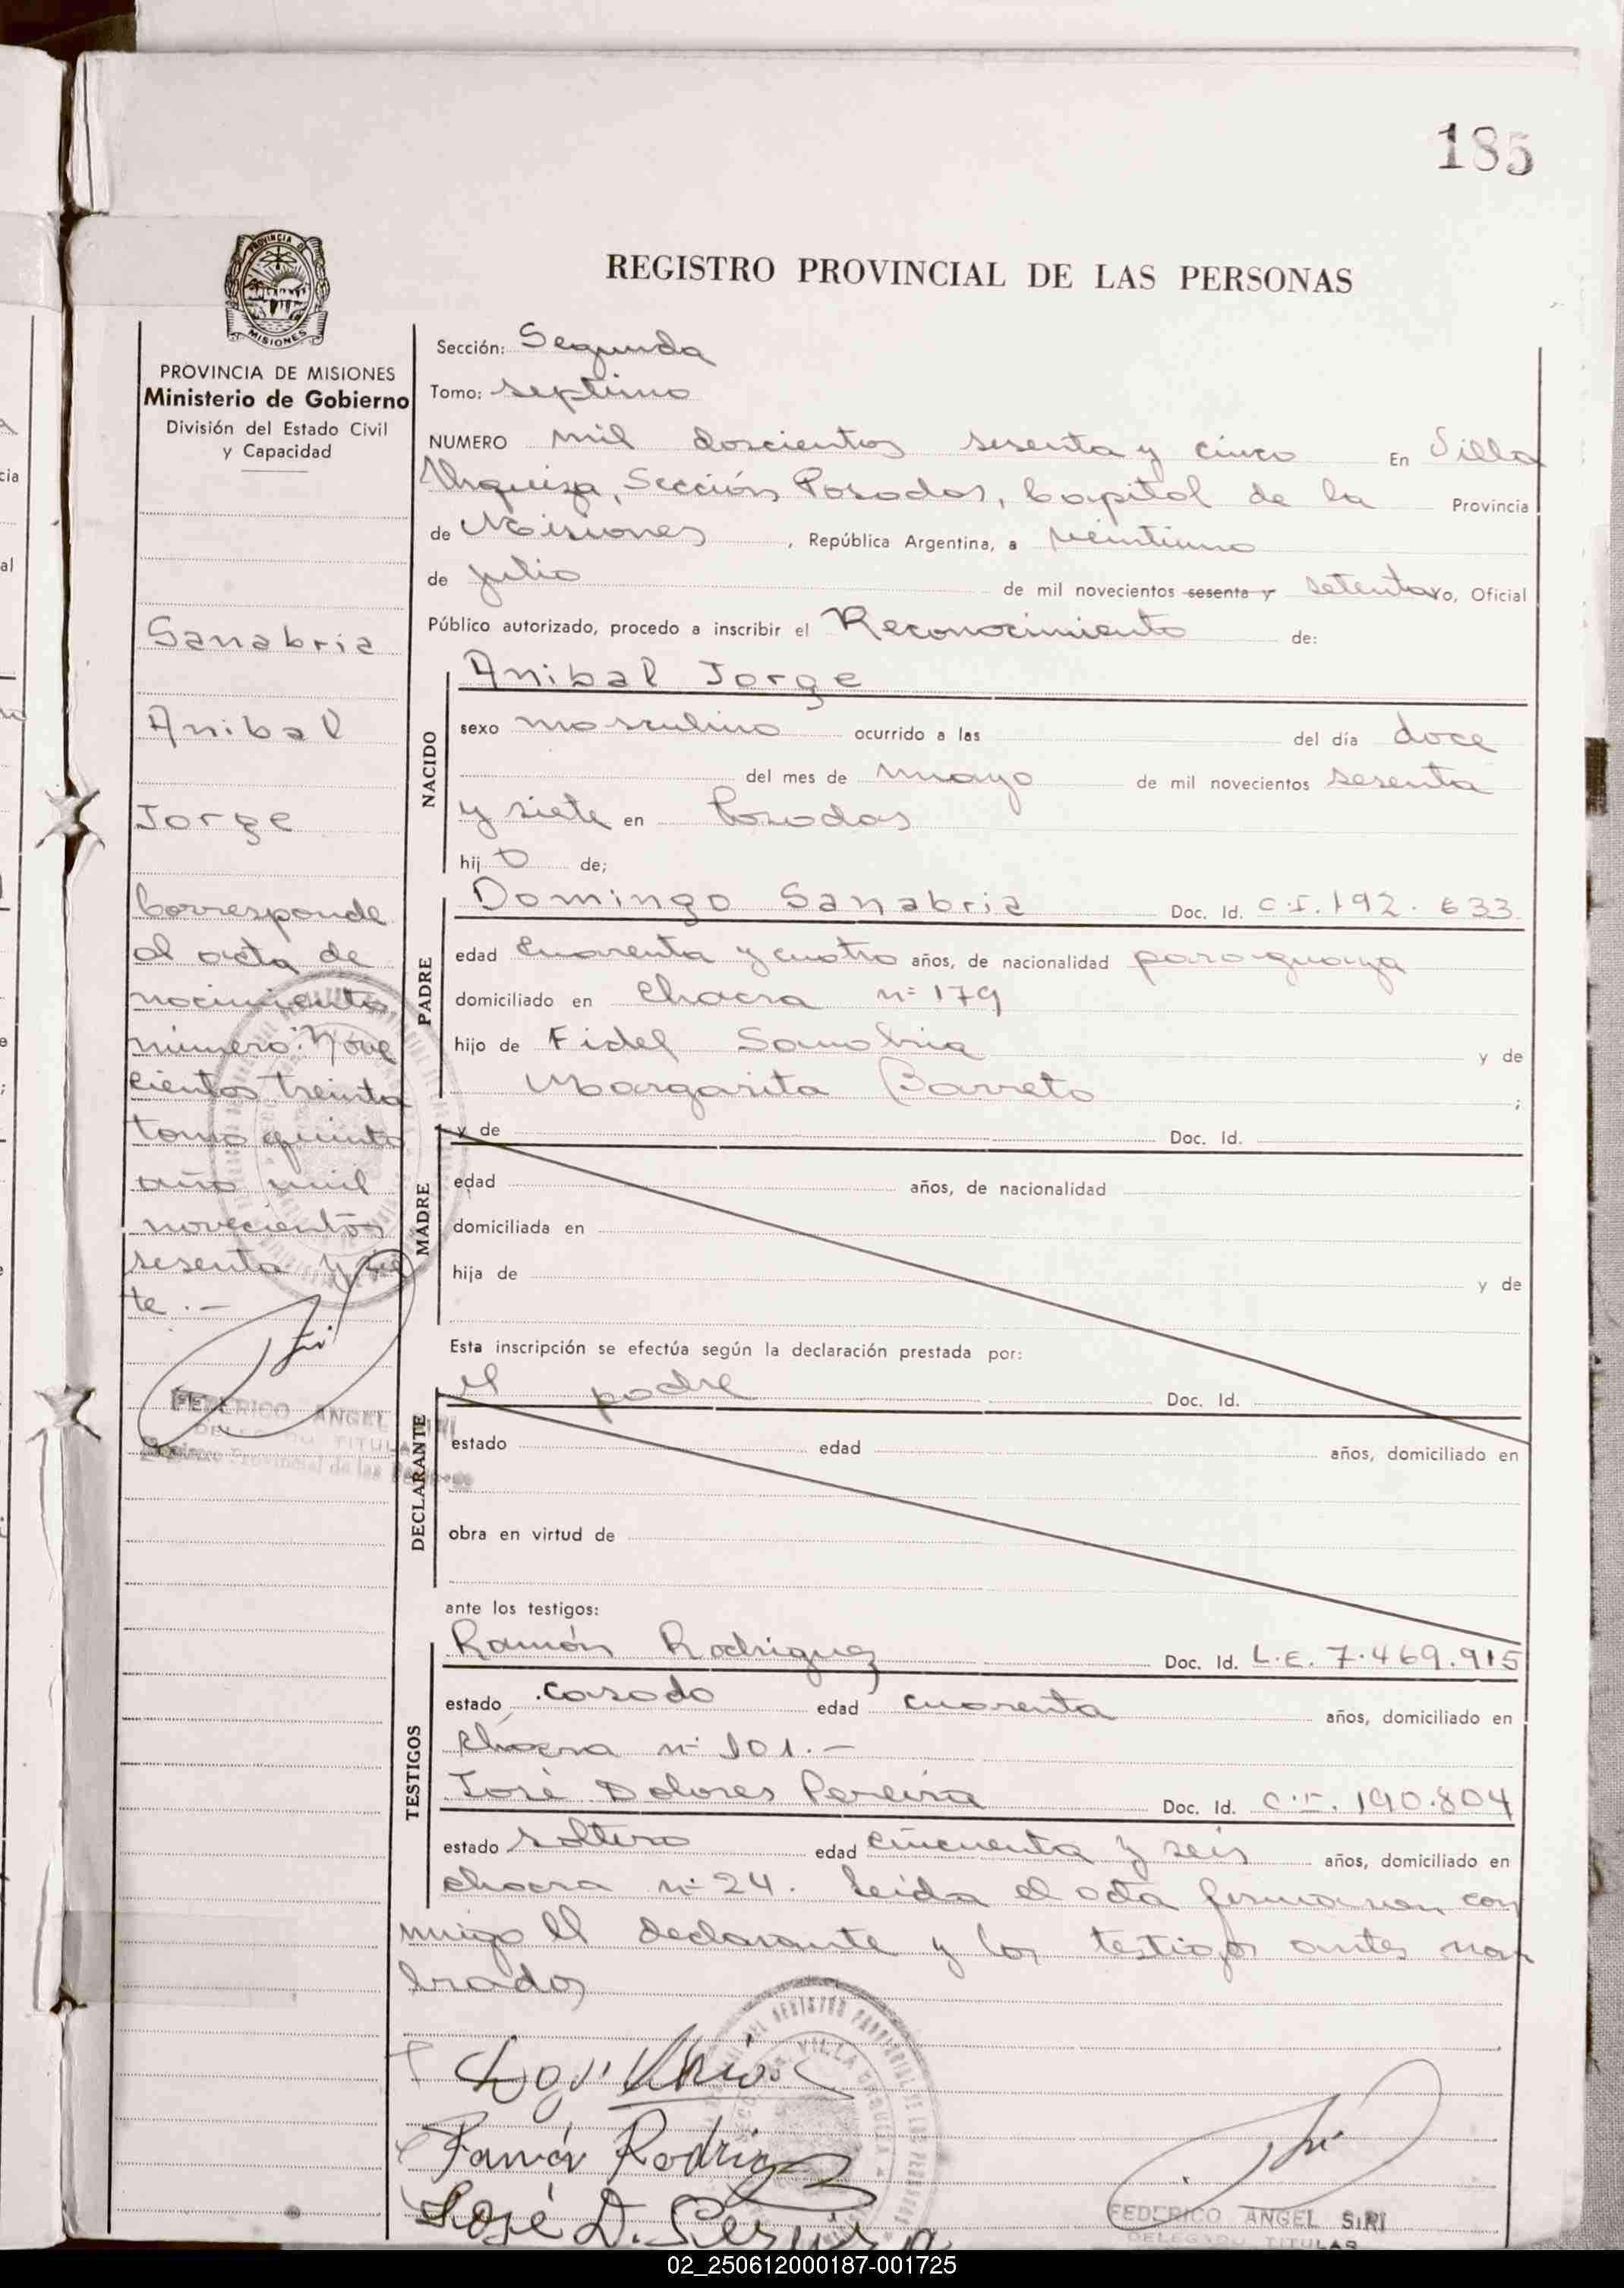 185
PROVINCIA DE MISIONES
REGISTRO PROVINCIAL DE LAS PERSONAS
PROVINCIA DE MISIONES
Ministerio de Gobierno
División del Estado Civil
y Capacidad
Sanabria
Anibal
Jorge
Corresponde
al acta de
nacimiento
número: Nove
cientos treinta
tomo quinto
año mil
novecientos
sesenta y sie
te.-
FEDERICO ANGEL SIRI
DELEGADO TITULAR
Registro Provincial de las Personas
Sección: Segunda
Tomo: septimo
NUMERO mil doscientos sesenta y cinco En Villa
Urquiza, Sección Posadas, Capital de la Provincia
de Misiones, República Argentina, a veintiuno
de julio de mil novecientos sesenta y setenta yo, Oficial
Público autorizado, procedo a inscribir el Reconocimiento de:
NACIDO
Anibal Jorge
sexo masculino ocurrido a las del día doce
del mes de mayo de mil novecientos sesenta
y siete en Posadas
hijo de;
PADRE
Domingo Sanabria Doc. Id. C.I. 192.633
edad cuarenta y cuatro años, de nacionalidad paraguaya
domiciliado en chacra nº 179
hijo de Fidel Sanabria y de
Margarita Barreto ;
MADRE
y de Doc. Id.
edad años, de nacionalidad
domiciliada en
hija de y de
Esta inscripción se efectúa según la declaración prestada por:
DECLARANTE
el padre Doc. Id.
estado edad años, domiciliado en
obra en virtud de
ante los testigos:
TESTIGOS
Ramón Rodriguez Doc. Id. L.E. 7.469.915
estado casado edad cuarenta años, domiciliado en
chacra nº 101.-
José Dolores Pereira Doc. Id. C.I. 190.804
estado soltero edad cincuenta y seis años, domiciliado en
chacra nº 24. Leida el acta firmaron con
migo el declarante y los testigos antes nom
brados
Ramón Rodriguez
José D. Pereira
FEDERICO ANGEL SIRI
DELEGADO TITULAR
02_250612000187-001725